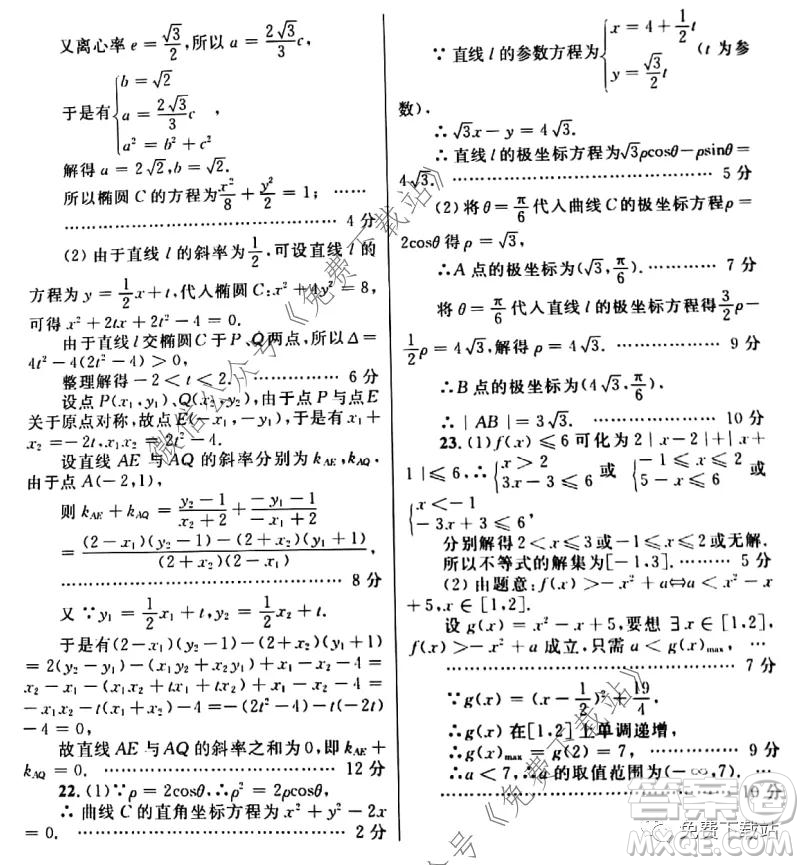 又离心率 e = √3/2,所以 a = 2√3/3 c,
于是有 { b = √2
a = 2√3/3 c ,
a² = b² + c²
解得 a = 2√2,
所以椭圆 C 的方程为 x²/8 + y²/2 = 1; ……
…………………………… 4 分
(2) 由于直线 l 的斜率为 1/2,可设直线 l 的
方程为 y = 1/2 x + t,代入椭圆 C:x² + 4y² = 8,
可得 x² + 2tx + 2t² − 4 = 0.
由于直线 l 交椭圆 C 于 P、Q 两点,所以 Δ =
4t² − 4(2t² − 4) > 0,
整理解得 −2 < t < 2. …………… 6 分
设点 P(x₁, y₁)、Q(x₂, y₂),由于点 P 与点 E
关于原点对称,故点 E(−x₁, −y₁),于是有 x₁ +
x₂ = −2t, x₁x₂ = 2t² − 4.
设直线 AE 与 AQ 的斜率分别为 k_AE, k_AQ,
由于点 A(−2,1),
则 k_AE + k_AQ = (y₂ − 1)/(x₂ + 2) + (−y₁ − 1)/(−x₁ + 2)
= [(2 − x₁)(y₂ − 1) − (2 + x₂)(y₁ + 1)]/[(2 + x₂)(2 − x₁)],
…………………………… 8 分
又 ∵ y₁ = 1/2 x₁ + t, y₂ = 1/2 x₂ + t.
于是有(2−x₁)(y₂−1)−(2+x₂)(y₁+1)
= 2(y₂ − y₁) − (x₁y₂ + x₂y₁) + x₁ − x₂ − 4 =
x₂ − x₁ − (x₁x₂ + tx₁ + tx₂) + x₁ − x₂ − 4 =
−x₁x₂−t(x₁+x₂)−4=−(2t²−4)−t(−2t)−
4 = 0,
故直线 AE 与 AQ 的斜率之和为 0,即 k_AE +
k_AQ = 0. …………………………… 12 分
22. (1) ∵ρ = 2cosθ, ∴ρ² = 2ρcosθ,
∴ 曲线 C 的直角坐标方程为 x² + y² − 2x
= 0. …………………………… 2 分
∵ 直线 l 的参数方程为 { x = 4 + 1/2 t
y = √3/2 t (t 为参
数),
∴ √3x − y = 4√3.
∴ 直线 l 的极坐标方程为 √3ρcosθ − ρsinθ =
4√3. …………………………… 5 分
(2) 将 θ = π/6 代入曲线 C 的极坐标方程 ρ =
2cosθ 得 ρ = √3,
∴ A 点的极坐标为(√3, π/6). ………… 7 分
将 θ = π/6 代入直线 l 的极坐标方程得 3/2 ρ −
1/2 ρ = 4√3,解得 ρ = 4√3. …………… 9 分
∴ B 点的极坐标为(4√3, π/6).
∴ | AB | = 3√3. …………… 10 分
23. (1) f(x) ≤ 6 可化为 2 | x − 2 | + | x +
1 | ≤ 6, ∴ { x > 2
3x − 3 ≤ 6 或 { −1 ≤ x ≤ 2
5 − x ≤ 6 或
{ x < −1
−3x + 3 ≤ 6,
分别解得 2 < x ≤ 3 或 −1 ≤ x ≤ 2 或无解.
所以不等式的解集为[−1,3]. ……… 5 分
(2) 由题意: f(x) > −x² + a ⇔ a < x² − x
+ 5, x ∈ [1,2].
设 g(x) = x² − x + 5,要想 ∃x ∈ [1,2],
f(x) > −x² + a 成立,只需 a < g(x)max,……
…………………………… 7 分
∵ g(x) = (x − 1/2)² + 19/4,
∴ g(x) 在[1,2]上单调递增,
∴ g(x)max = g(2) = 7, …………… 9 分
∴ a < 7, ∴ a 的取值范围为(−∞,7). ……
…… 10 分
微信公众号《免费下载站》
微信公众号《免费下载站》
答案圈
免费下载站
MXQE.COM